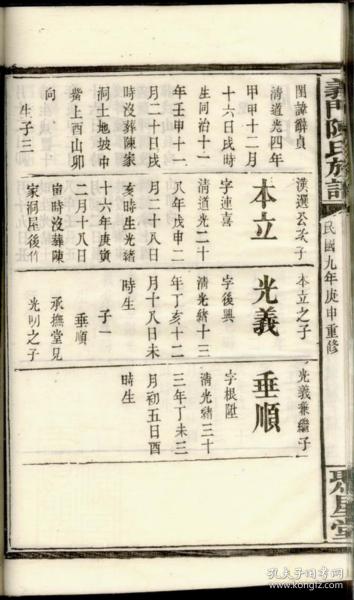 義門陳氏族譜
民國九年庚申重修
聚星堂
漢選公次子
本立
字連喜
清道光二十
八年戊申二
月二十八日
亥時生光緒
十六年庚寅
二月十八日
時沒葬陳
家洞屋後竹
閨諱辭貞
清道光四年
甲申十二月
十六日戌時
生同治十一
年壬申十一
月二十日戌
時沒葬陳家
洞土地坡中
嘴上酉山卯
向
生子三
本立之子
光義
字後興
清光緒十三
年丁亥十二
月十八日未
時生
子一
垂順
承撫堂兄
光明之子
光義兼繼子
垂順
字根陞
清光緒三十
三年丁未三
月初五日酉
時生
孔夫子旧书网